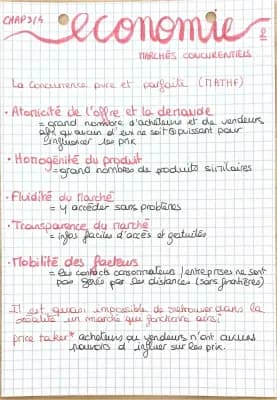 CHAP3/4 economie 2
MARCHÉS CONCURENTIELS
La concurrence pure et parfaite (MATHF)
• Atomicité de l'offre et la demande
= grand nombre d'acheteurs et de vendeurs
afin qu'aucun d'eux ne soit puissant pour
l'influencer les prix
• Homogénité du produit
= grand nombres de produits similaires
• Fluidité du Marché
= y accéder sans problèmes
• Transparence du marché
= infos faciles d'accès et gratuités
• Mobilité des facteurs
= les contacts consommateurs / entreprises ne sont
pas gênés par les distances (sans frontières)
Il est quasi impossible de retrouver dans la
réalité un marché qui fonctionne ainsi
price taker* acheteurs ou vendeurs n'ont aucuns
pouvoirs d'influer sur les prix.